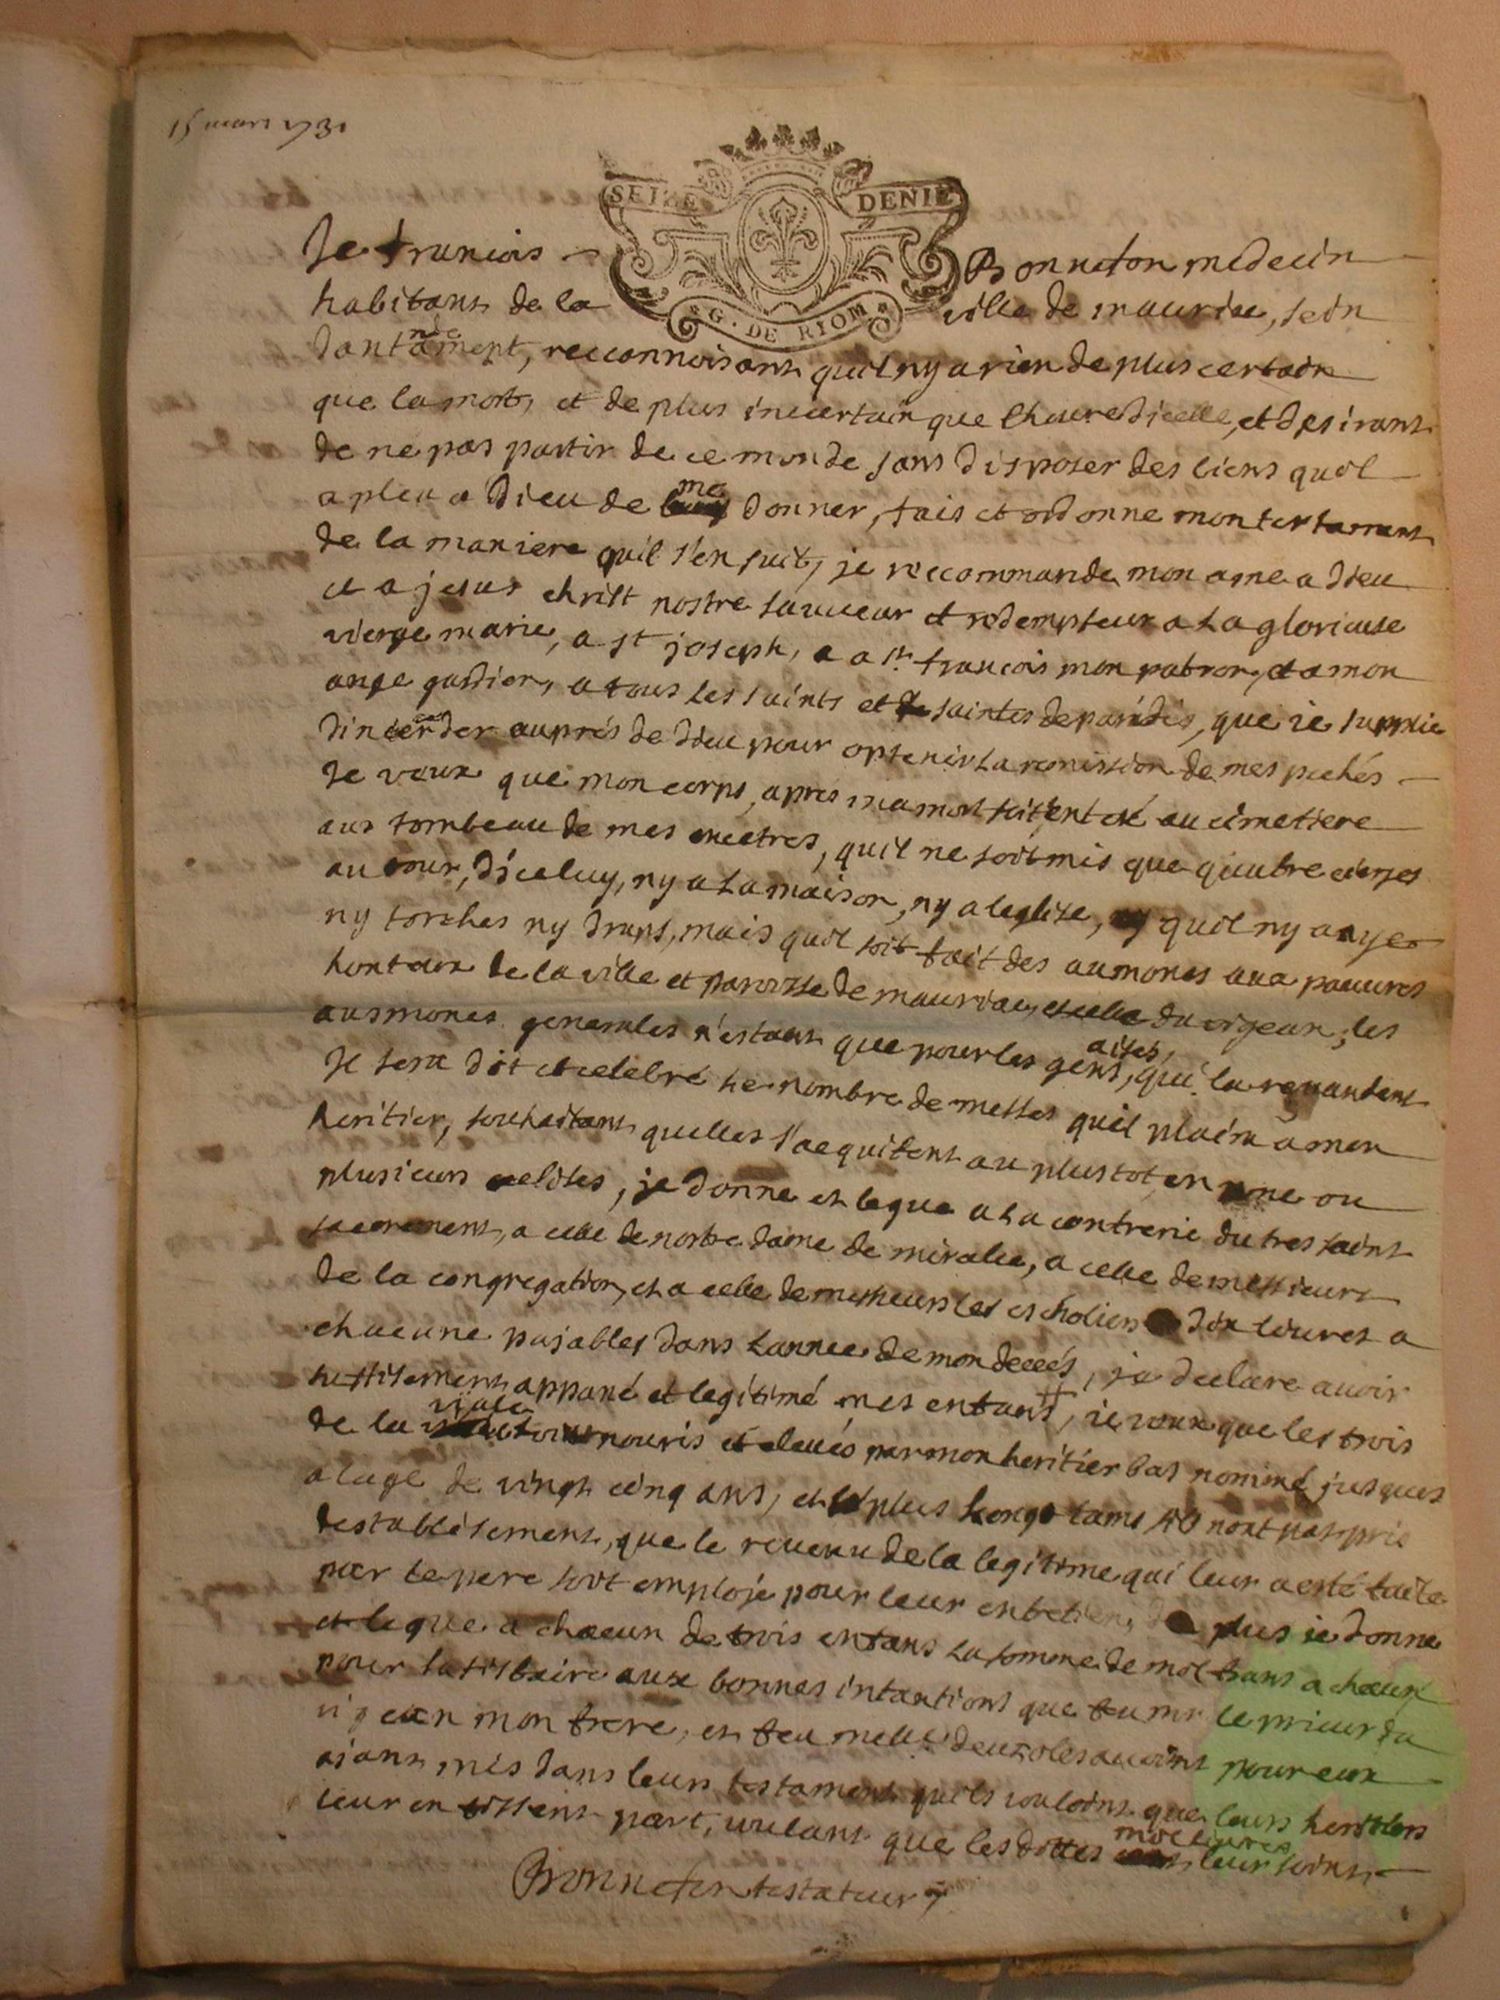 15 mars 1731
SEIZE DENIE
G. DE RIOM
Je francois Bonnefon medecin
habitant de la ville de mauriac, sein
dantandement, reconnoisant quil ny a rien de plus certain
que la mort, et de plus incertain que lheure dicelle, et desirant
de ne pas partir de ce monde sans disposer des biens quil
a pleu a dieu de me donner, fais et ordonne mon testament
de la maniere quil s'en suit, je reccommande mon ame a dieu
et a jesus christ nostre sauveur et redempteur a la glorieuse
vierge marie, a st joseph, a st francois mon patron, et a mon
ange gardien, a tous les saints et saintes de paradis, que ie supplie
d'inceder aupres de dieu pour optenir la remission de mes pechés
Je veux que mon corps, apres ma mort soit enterré au cimetiere
aux tombeau de mes ancetres, quil ne soit mis que quatre cierges
autour, d'iceluy, ny a la maison, ny a leglise, quil ny aye
ny torches ny draps, mais quil soit fait des aumones aux pauvres
honteux de la ville et paroisse de mauriac et celle du vigean, les
ausmones generales n'estant que pour les gens aises, qui la revandent
Il sera dit et celebré le nombre de messes quil plaira a mon
heritier, souhaitant quelles s'acquitent au plustot, en une ou
plusieurs eglises, je donne et legue a la confrerie du tres saint
sacrement, a celle de nostre dame de miracle, a celle de messieurs
de la congregation, et a celle de messieurs les escholiers dix livres a
chacune pajables dans l'annee de mon decés, je declare avoir
suffisement appané et legitimé mes enfans, ie veux que les trois
de la viale soint nouris et elevés par mon heritier bas nommé jusques
a lage de vingt cinq ans, et plus longtams sils nont pas pris
destablisement, que le revenu de la legitime qui leur a esté faite
par le pere soit emploje pour leur entretien, de plus ie donne
et legue a chacun de trois enfans la somme de mil frans a chacun
pour satisfaire aux bonnes intantions que feu mr le prieur du
vigean mon frere, et feu melle deuzoles avoint pour eux
ajant mis dans leurs testament quils vouloint que leurs heritiers
leur en fissent part, voulant que lesdittes mille livres leur soint
Bonnefon testateur